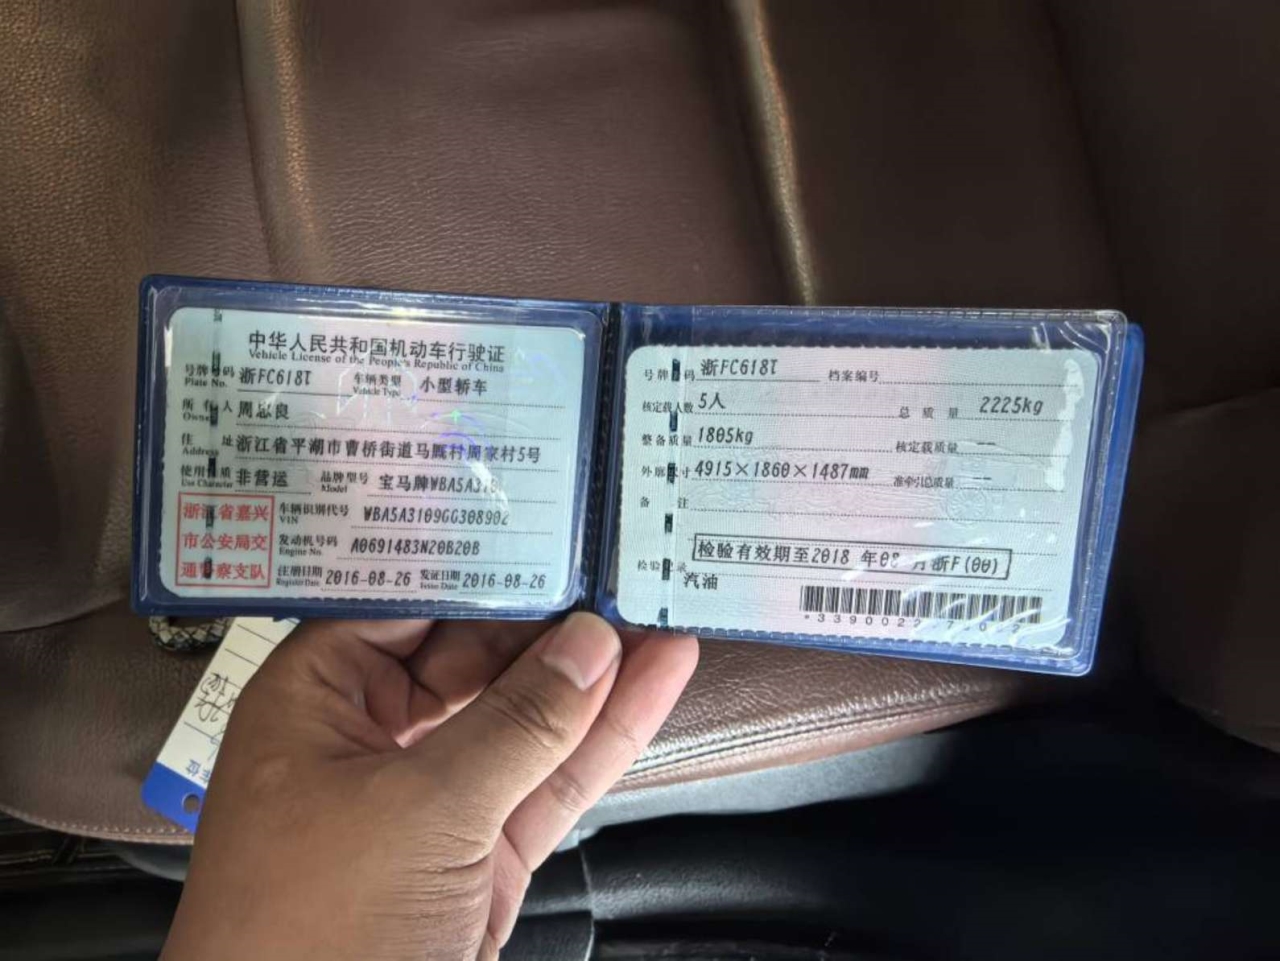 中华人民共和国机动车行驶证
Vehicle License of the People's Republic of China
号牌号码 浙FC618T 车辆类型 小型轿车
Plate No. Vehicle Type
所有人 周忠良
Owner
住址 浙江省平湖市曹桥街道马厩村周家村5号
Address
使用性质 非营运 品牌型号 宝马牌WBA5A31
Use Character Model
浙江省嘉兴
市公安局交
通警察支队
车辆识别代号 WBA5A3109GG308902
VIN
发动机号码 A0691483N20B20B
Engine No.
注册日期 2016-08-26 发证日期 2016-08-26
Register Date Issue Date
号牌号码 浙FC618T 档案编号
核定载人数 5人 总质量 2225kg
整备质量 1805kg 核定载质量 --
外廓尺寸 4915×1860×1487mm 准牵引总质量 --
备注
检验有效期至2018 年08 月浙F(00)
检验记录
汽油
*3390022